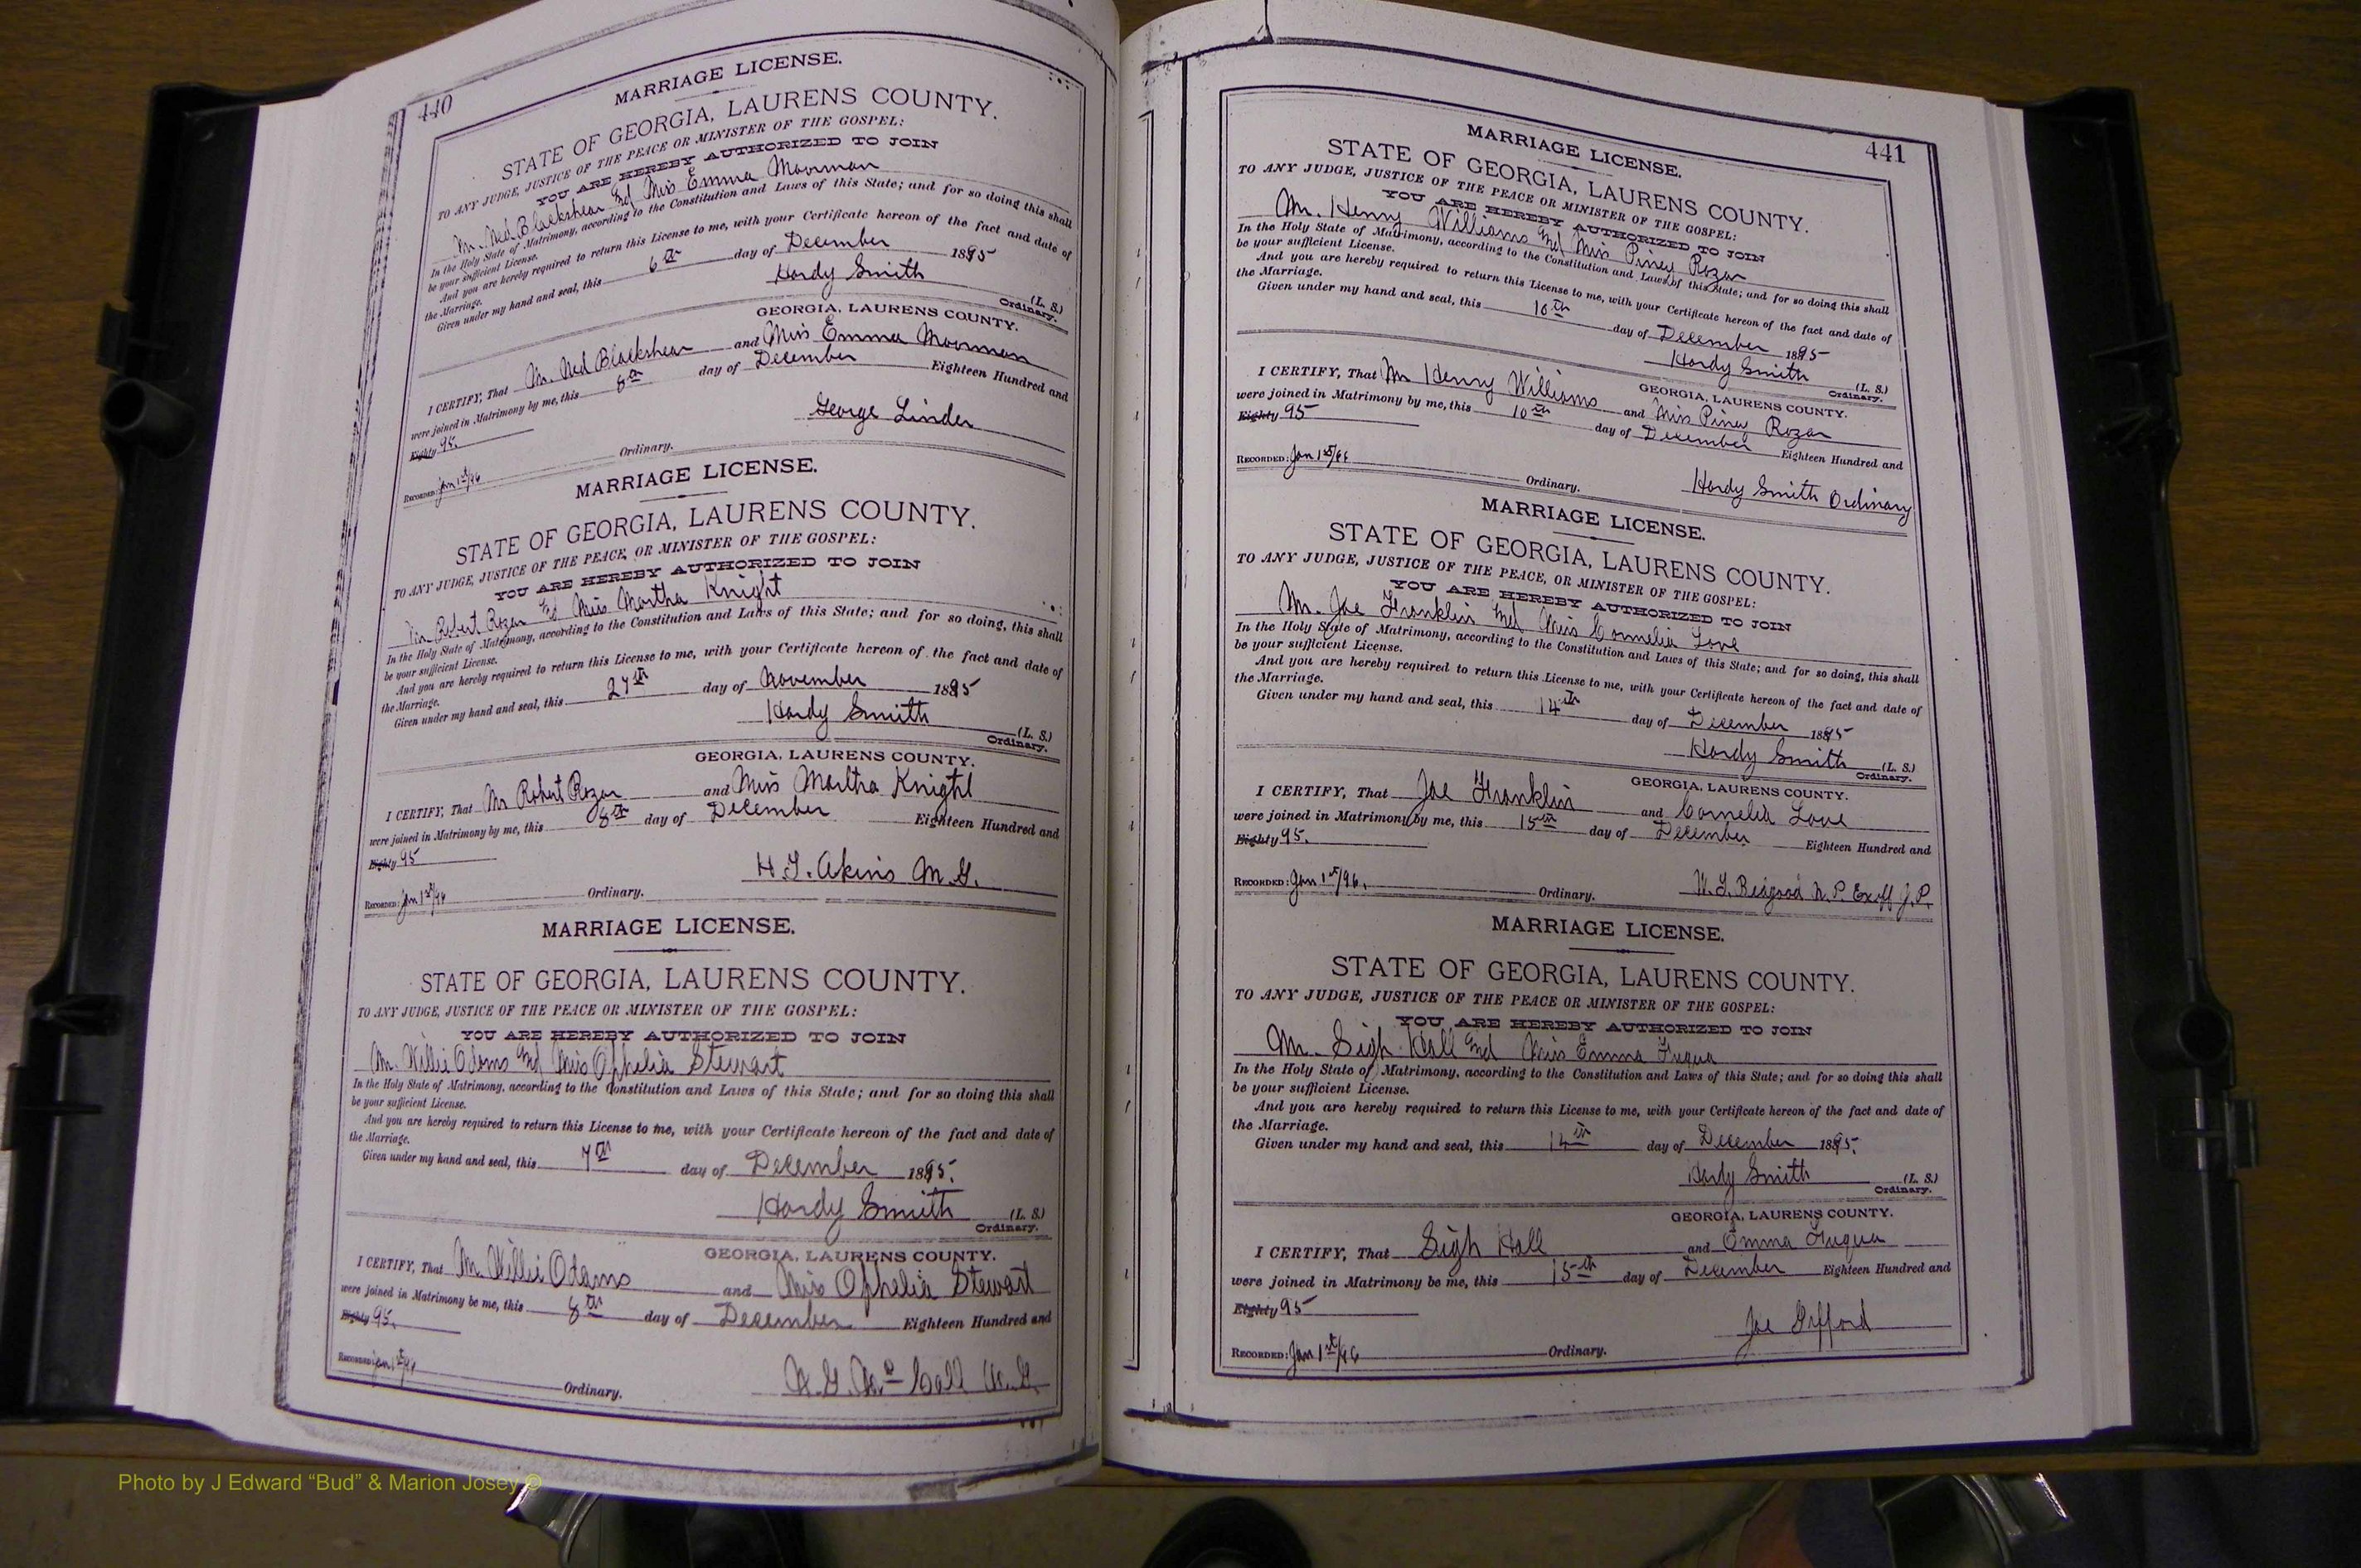 440
MARRIAGE LICENSE.
STATE OF GEORGIA, LAURENS COUNTY.
TO ANY JUDGE, JUSTICE OF THE PEACE OR MINISTER OF THE GOSPEL:
YOU ARE HEREBY AUTHORIZED TO JOIN
Mr. Ned Blackshear and Miss Emma Moorman
In the Holy State of Matrimony, according to the Constitution and Laws of this State; and for so doing this shall
be your sufficient License.
And you are hereby required to return this License to me, with your Certificate hereon of the fact and date of
the Marriage.
Given under my hand and seal, this 6th day of December 1895
Hardy Smith (L. S.)
Ordinary.
GEORGIA, LAURENS COUNTY.
I CERTIFY, That Mr. Ned Blackshear and Miss Emma Moorman
were joined in Matrimony by me, this 8th day of December Eighteen Hundred and
Eighty 95.
George Linder
RECORDED: Jan 1st/96 Ordinary.
MARRIAGE LICENSE.
STATE OF GEORGIA, LAURENS COUNTY.
TO ANY JUDGE, JUSTICE OF THE PEACE, OR MINISTER OF THE GOSPEL:
YOU ARE HEREBY AUTHORIZED TO JOIN
Mr. Robert Rozar and Miss Martha Knight
In the Holy State of Matrimony, according to the Constitution and Laws of this State; and for so doing, this shall
be your sufficient License.
And you are hereby required to return this License to me, with your Certificate hereon of the fact and date of
the Marriage.
Given under my hand and seal, this 27th day of November 1895
Hardy Smith (L. S.)
Ordinary.
GEORGIA, LAURENS COUNTY.
I CERTIFY, That Mr Robert Rozar and Miss Martha Knight
were joined in Matrimony by me, this 8th day of December Eighteen Hundred and
Eighty 95
H. T. Akins M. G.
RECORDED: Jan 1st/96 Ordinary.
MARRIAGE LICENSE.
STATE OF GEORGIA, LAURENS COUNTY.
TO ANY JUDGE, JUSTICE OF THE PEACE OR MINISTER OF THE GOSPEL:
YOU ARE HEREBY AUTHORIZED TO JOIN
Mr. Willie Adams and Miss Ophelia Stewart
In the Holy State of Matrimony, according to the Constitution and Laws of this State; and for so doing this shall
be your sufficient License.
And you are hereby required to return this License to me, with your Certificate hereon of the fact and date of
the Marriage.
Given under my hand and seal, this 7th day of December 1895.
Hardy Smith (L. S.)
Ordinary.
GEORGIA, LAURENS COUNTY.
I CERTIFY, That Mr. Willie Adams and Miss Ophelia Stewart
were joined in Matrimony be me, this 8th day of December Eighteen Hundred and
Eighty 95.
Mc Call M. G.
RECORDED: Jan 1st/96 Ordinary.
441
MARRIAGE LICENSE.
STATE OF GEORGIA, LAURENS COUNTY.
TO ANY JUDGE, JUSTICE OF THE PEACE OR MINISTER OF THE GOSPEL:
YOU ARE HEREBY AUTHORIZED TO JOIN
Mr. Henry Williams and Miss Piney Rozar
In the Holy State of Matrimony, according to the Constitution and Laws of this State; and for so doing this shall
be your sufficient License.
And you are hereby required to return this License to me, with your Certificate hereon of the fact and date of
the Marriage.
Given under my hand and seal, this 10th day of December 1895
Hardy Smith (L. S.)
Ordinary.
GEORGIA, LAURENS COUNTY.
I CERTIFY, That Mr Henry Williams and Miss Piney Rozar
were joined in Matrimony by me, this 10th day of December Eighteen Hundred and
Eighty 95
RECORDED: Jan 1st/96 Ordinary. Hardy Smith Ordinary
MARRIAGE LICENSE.
STATE OF GEORGIA, LAURENS COUNTY.
TO ANY JUDGE, JUSTICE OF THE PEACE, OR MINISTER OF THE GOSPEL:
YOU ARE HEREBY AUTHORIZED TO JOIN
Mr. Joe Franklin and Miss Cornelia Love
In the Holy State of Matrimony, according to the Constitution and Laws of this State; and for so doing, this shall
be your sufficient License.
And you are hereby required to return this License to me, with your Certificate hereon of the fact and date of
the Marriage.
Given under my hand and seal, this 14th day of December 1895
Hardy Smith (L. S.)
Ordinary.
GEORGIA, LAURENS COUNTY.
I CERTIFY, That Joe Franklin and Cornelia Love
were joined in Matrimony by me, this 15th day of December Eighteen Hundred and
Eighty 95.
RECORDED: Jan 1st/96. Ordinary. W. J. Bedgood N. P. Exoff J. P.
MARRIAGE LICENSE.
STATE OF GEORGIA, LAURENS COUNTY.
TO ANY JUDGE, JUSTICE OF THE PEACE OR MINISTER OF THE GOSPEL:
YOU ARE HEREBY AUTHORIZED TO JOIN
Mr. Sigh Hall and Miss Emma Fuqua
In the Holy State of Matrimony, according to the Constitution and Laws of this State; and for so doing this shall
be your sufficient License.
And you are hereby required to return this License to me, with your Certificate hereon of the fact and date of
the Marriage.
Given under my hand and seal, this 14th day of December 1895.
Hardy Smith (L. S.)
Ordinary.
GEORGIA, LAURENS COUNTY.
I CERTIFY, That Sigh Hall and Emma Fuqua
were joined in Matrimony be me, this 15th day of December Eighteen Hundred and
Eighty 95
Joe Gifford
RECORDED: Jan 1st/96 Ordinary.
Photo by J Edward “Bud” & Marion Josey ©